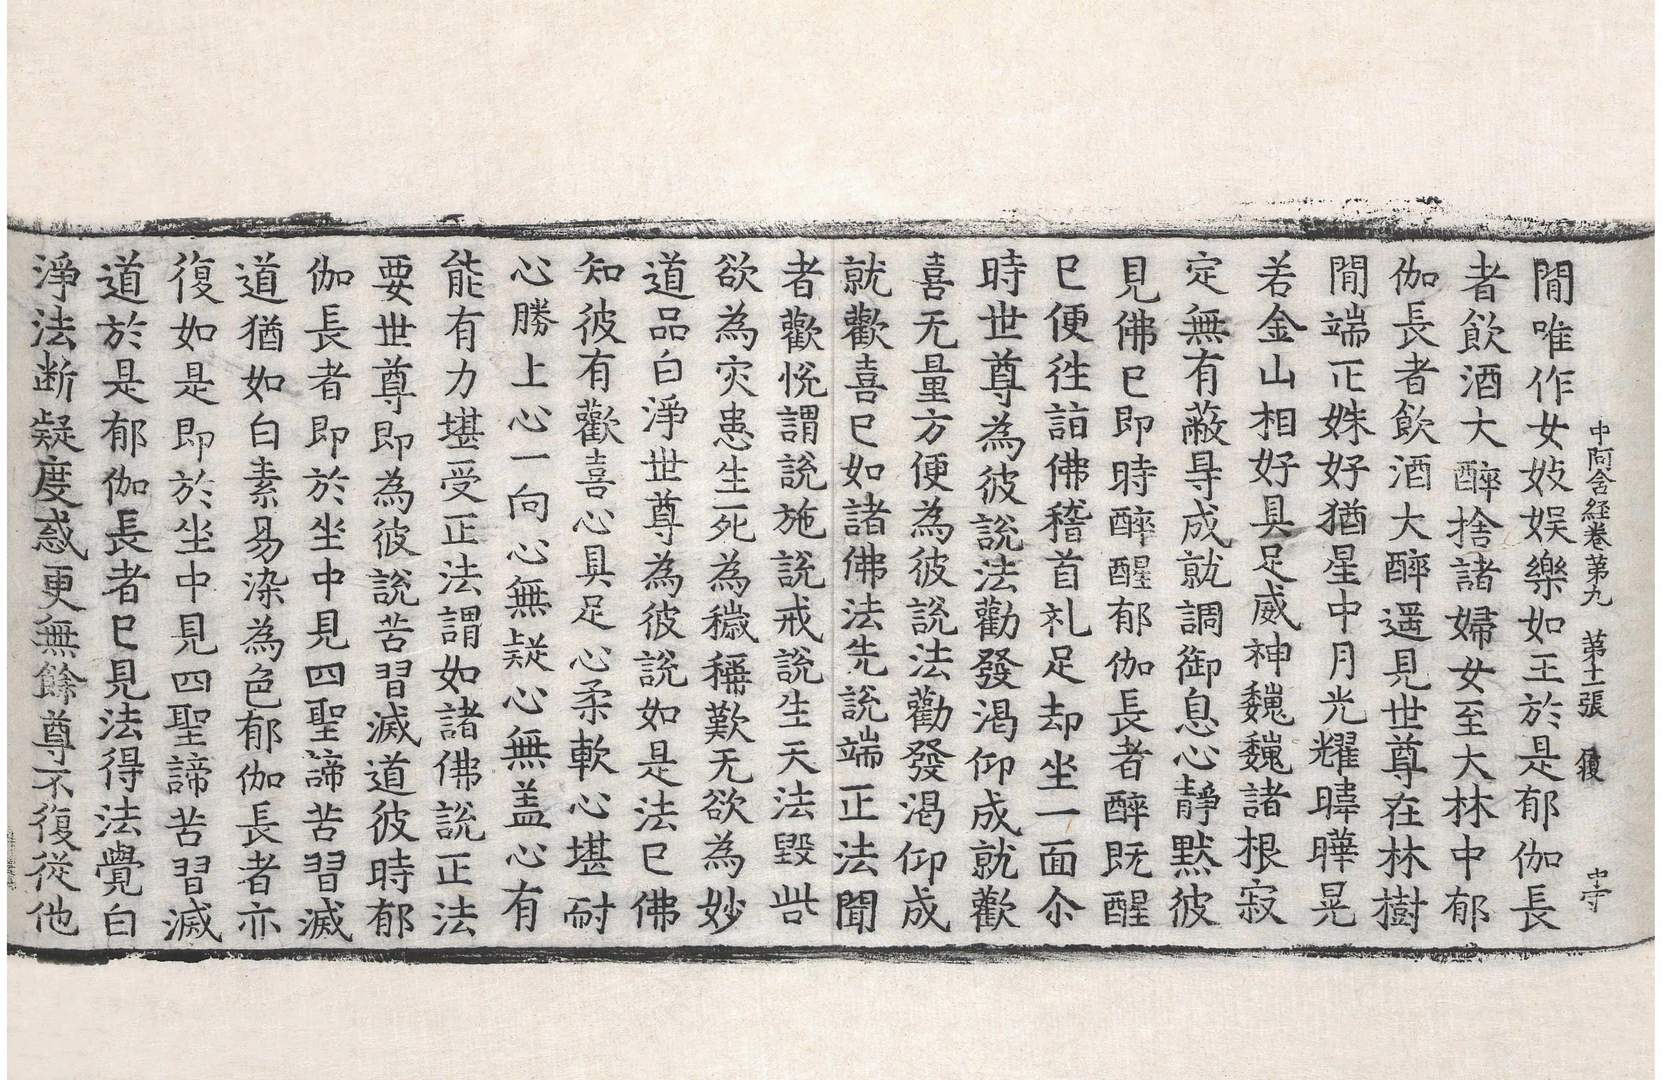 中阿含経卷第九　第十一張　履　中守
閒唯作女妓娱樂如王於是郁伽長
者飲酒大醉捨諸婦女至大林中郁
伽長者飲酒大醉遥見世尊在林樹
閒端正姝好猶星中月光耀暐曄晃
若金山相好具足威神巍巍諸根寂
定無有蔽㝵成就調御息心静默彼
見佛巳即時醉醒郁伽長者醉既醒
巳便徃詣佛稽首礼足却坐一面尒
時世尊為彼說法勸發渴仰成就歡
喜无量方便為彼說法勸發渴仰成
就歡喜巳如諸佛法先說端正法聞
者歡悅謂說施說戒說生天法毀呰
欲為灾患生死為穢稱歎无欲為妙
道品白淨世尊為彼說如是法巳佛
知彼有歡喜心具足心柔軟心堪耐
心勝上心一向心無疑心無盖心有
能有力堪受正法謂如諸佛說正法
要世尊即為彼說苦習滅道彼時郁
伽長者即於坐中見四聖諦苦習滅
道猶如白素易染為色郁伽長者亦
復如是即於坐中見四聖諦苦習滅
道於是郁伽長者巳見法得法覺白
淨法断疑度惑更無餘尊不復從他